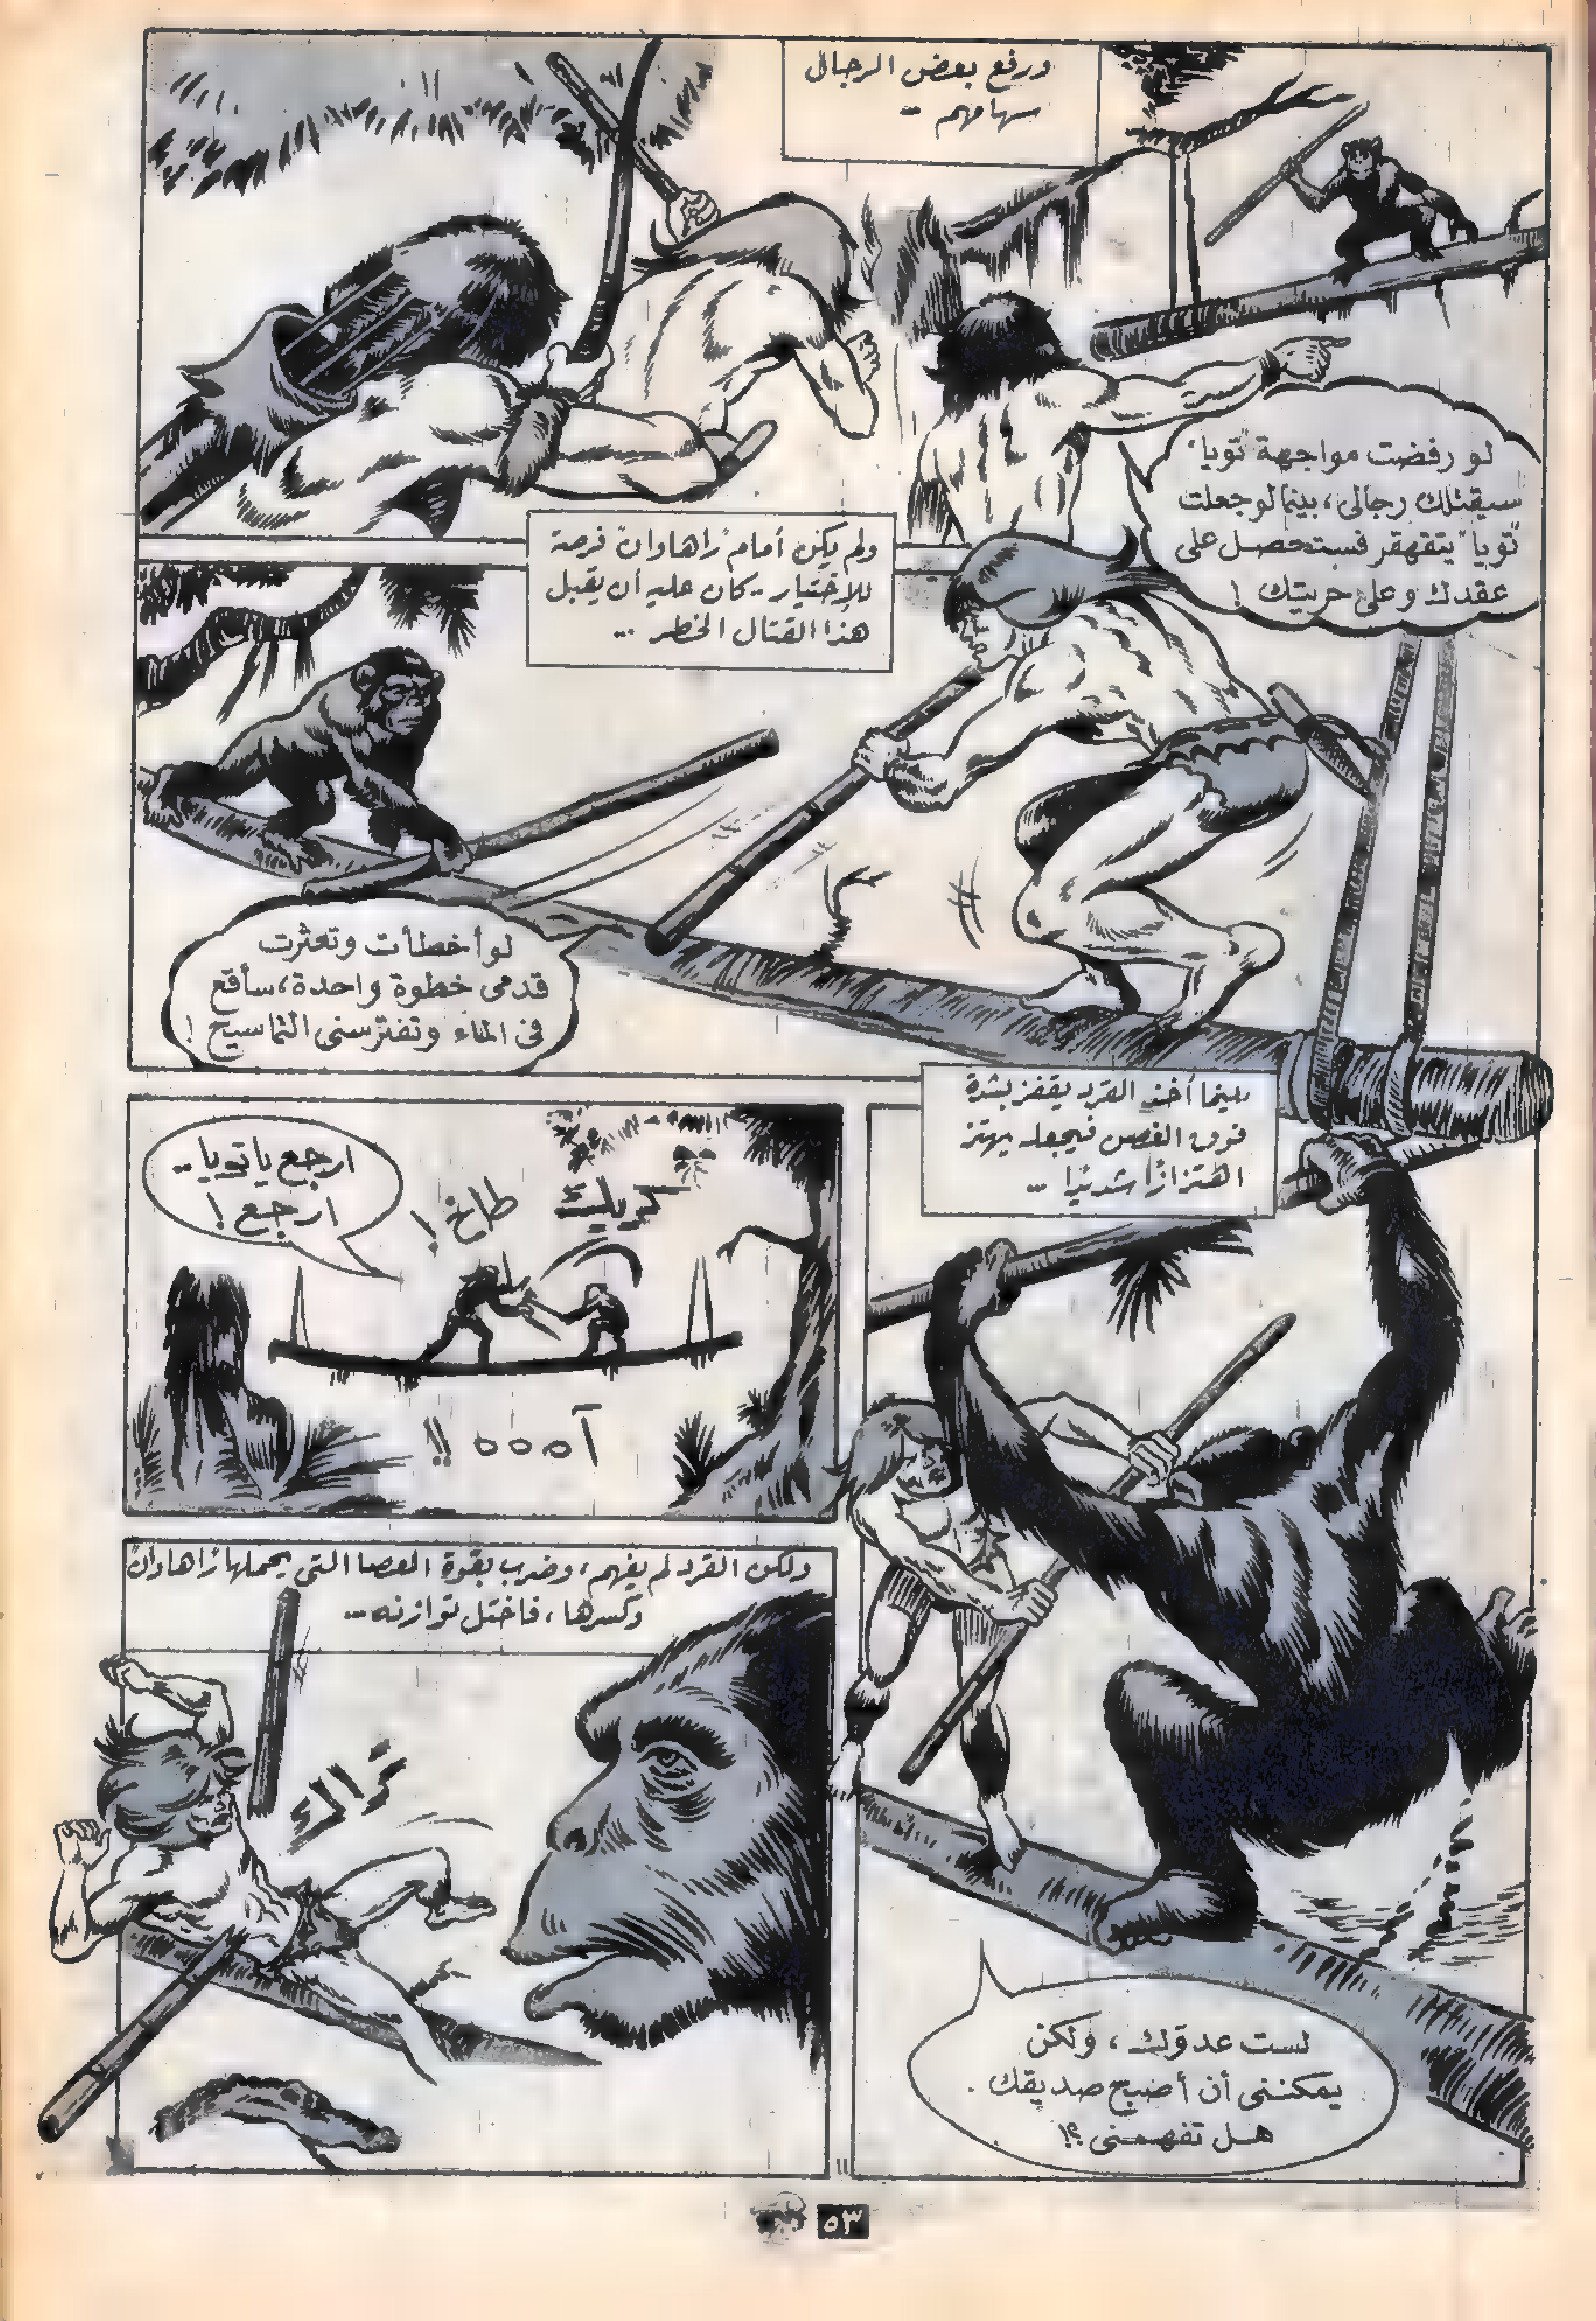 ورفع بعض الرجال
سهامهم ..
لو رفضت مواجهة "تويا"
سيقتلك رجالى، بينما لو جعلت
"تويا" يتقهقر فستحصل على
عقدك وعلى حريتك !
ولم يكن أمام "راهاوان" فرصة
للإختيار .. كان عليه أن يقبل
هذا القتال الخطر ...
لو أخطأت وتعثرت
قدمى خطوة واحدة، سأقع
فى الماء وتفترسنى التماسيح !
بينما أخذ القرد يقفز بشدة
فوق الغصن فيجعله يهتز
اهتزازًا شديدًا ...
ارجع يا تويا ..
ارجع !
كريك
طاخ !
آههه !!
لست عدوك، ولكن
يمكننى أن أصبح صديقك .
هل تفهمنى ؟!
ولكن القرد لم يفهم، وضرب بقوة العصا التى يحملها "راهاوان"
وكسرها، فاختل توازنه ...
كراك
٥٣